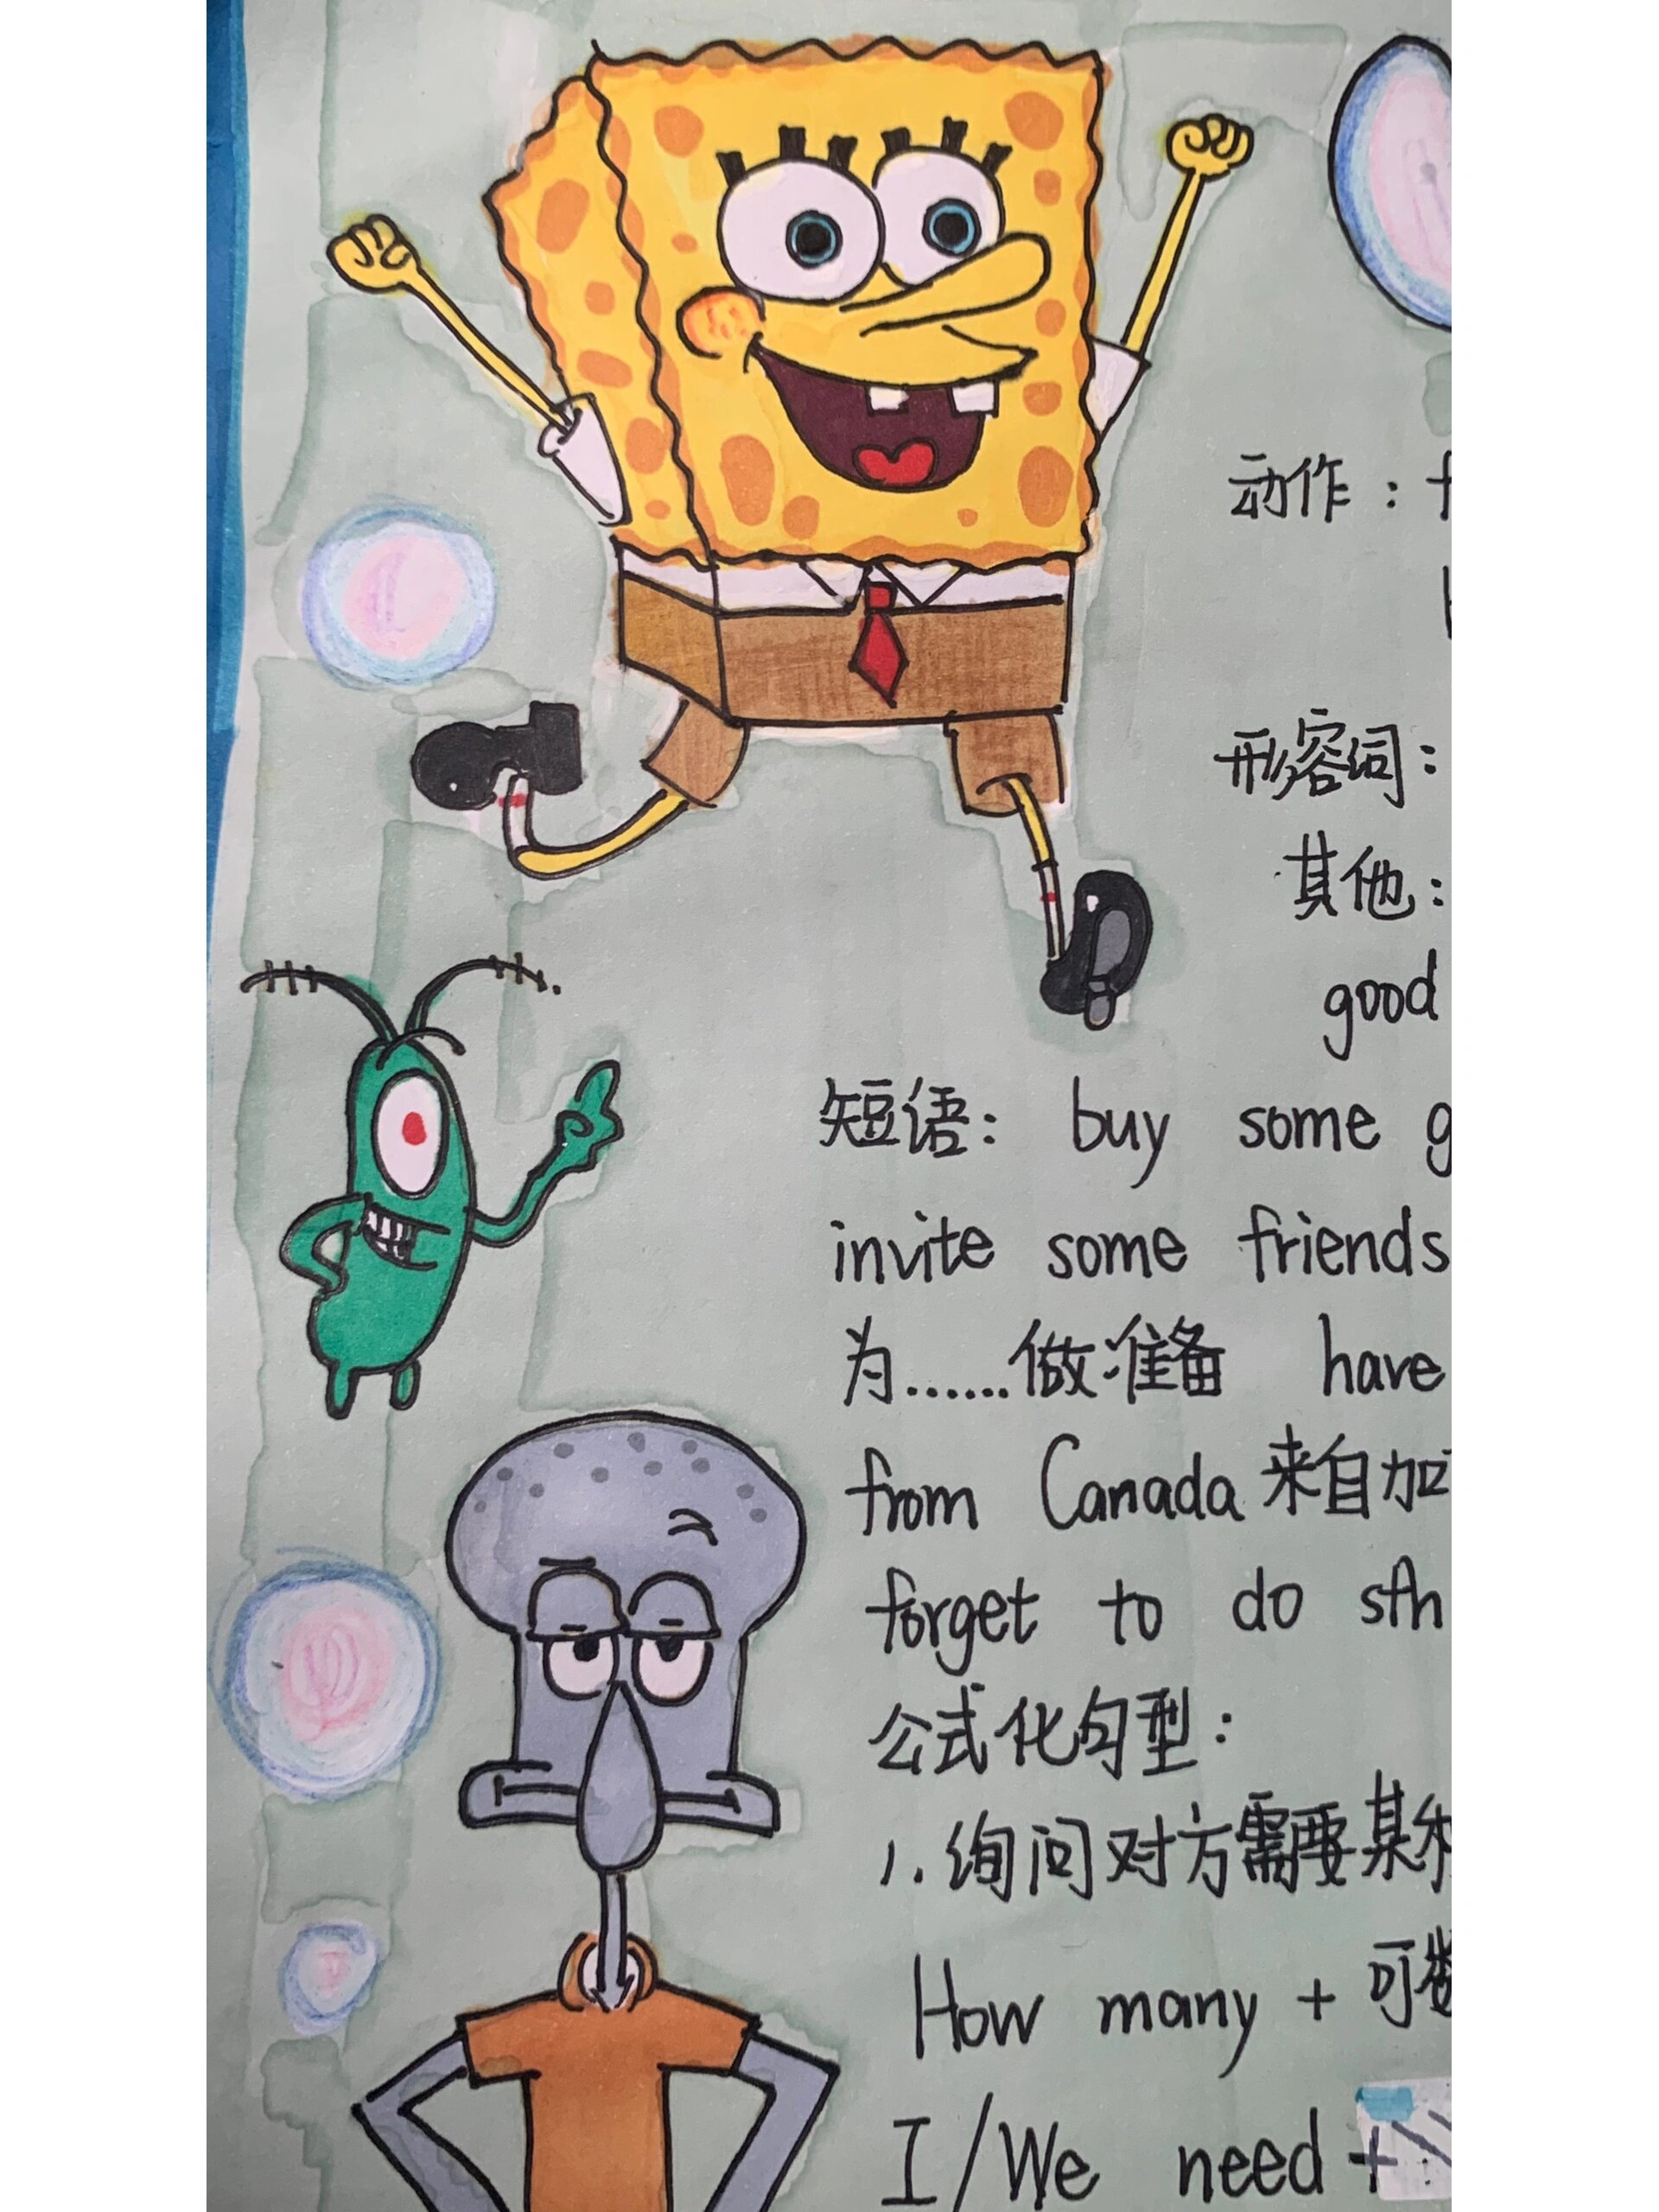 动作：
形容词：
其他：
good
短语： buy some g
invite some friends
为……做准备 have
from Canada 来自加
forget to do sth
公式化句型：
1. 询问对方需要某
How many + 可数
I/We need +